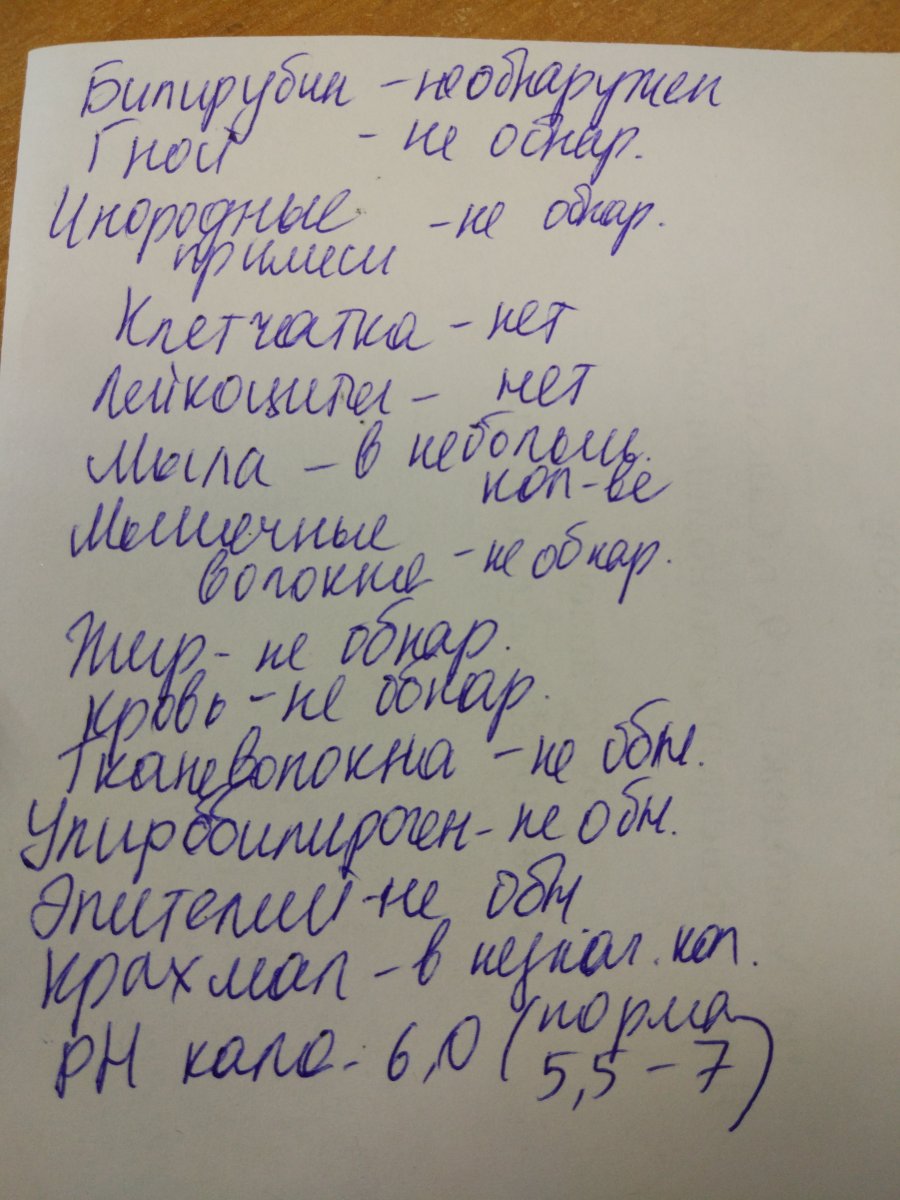 Билирубин - не обнаружен
Гной - не обнар.
Инородные - не обнар.
примеси
Клетчатка - нет
Лейкоциты - нет
Мыла - в небольш.
кол-ве
Мышечные
волокна - не обнар.
Жир - не обнар.
Кровь - не обнар.
Ткане волокна - не обн.
Упиробилиноген - не обн.
Эпителий - не обн
Крахмал - в незнач. кол.
pH кала - 6,0 (норма
5,5 - 7)